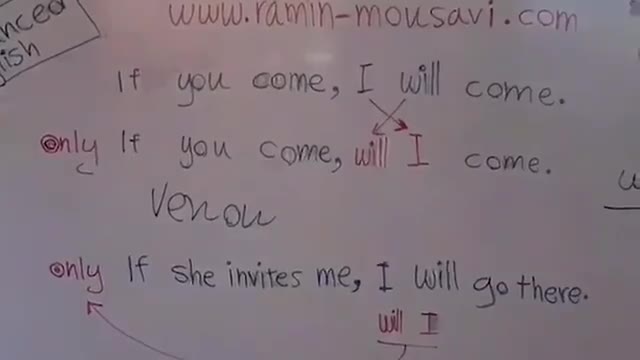 www.ramin-mousavi.com
If you come, I will come.
only If you come, will I come.
only If she invites me, I will go there.
will I